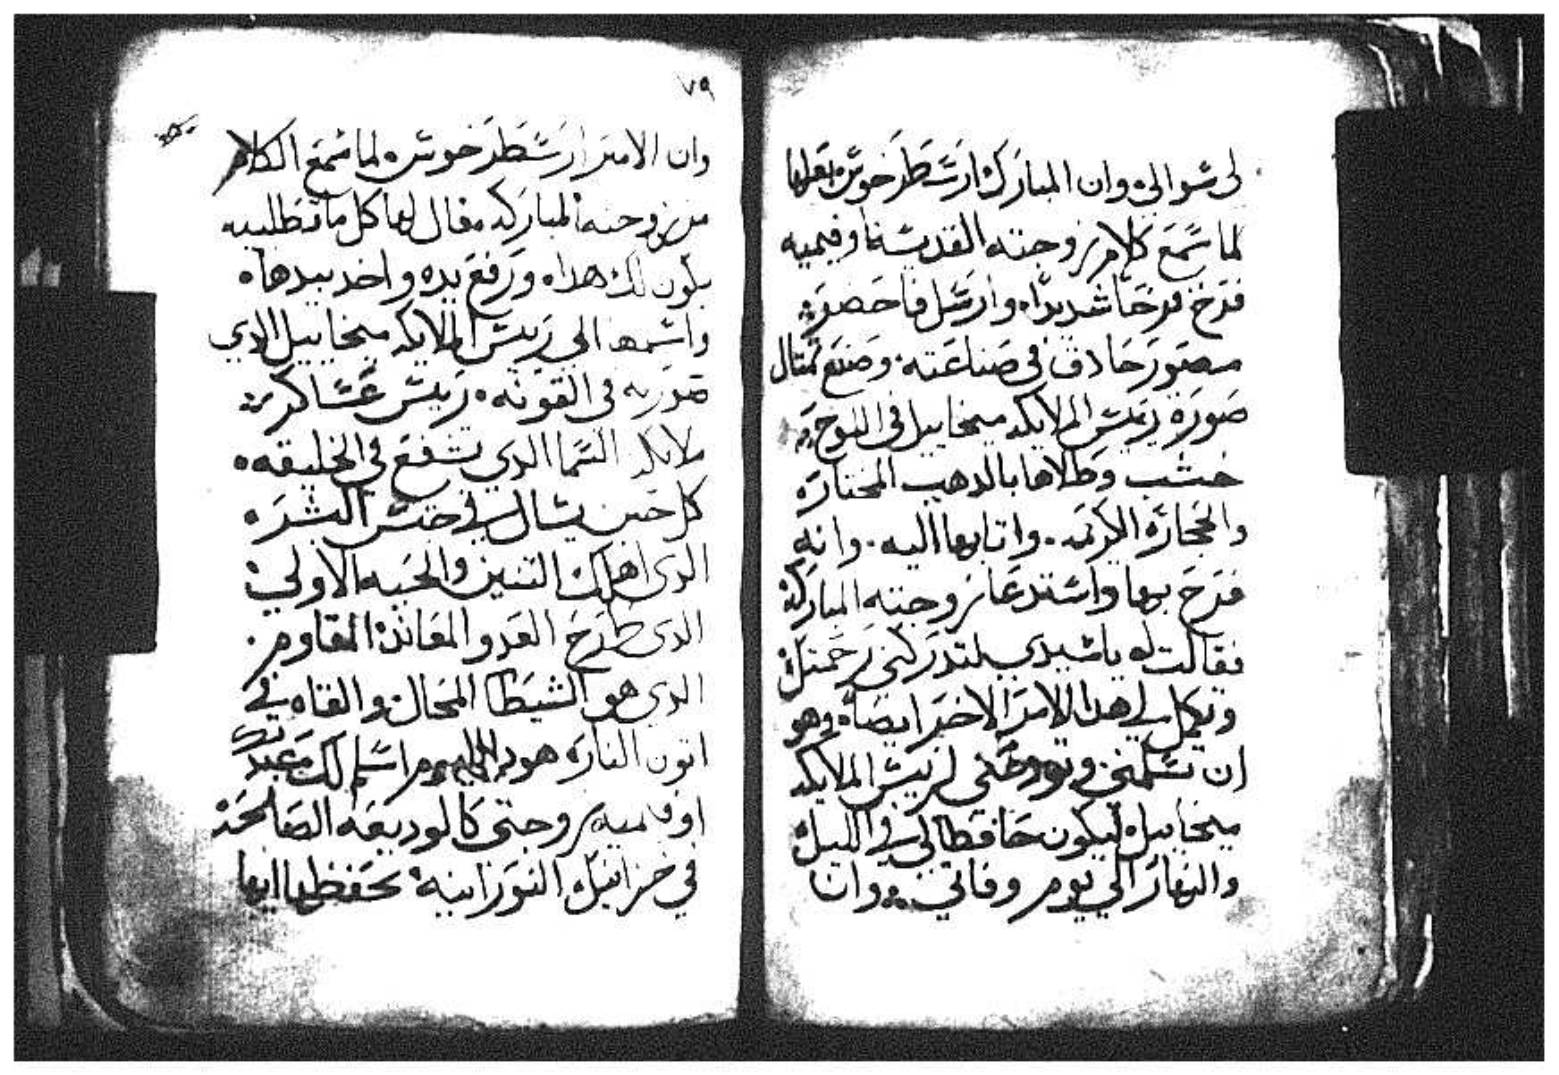 لى سوالى وان المبارك ارسطرخوس بعلها
لما سمع كلام زوجته القديسة اوفيميه
فرح فرحًا شديدًا وارسل فاحضر
مصور حادق في صناعته وصنع تمتال
صورة رييس الملايكه ميخاييل في اللوح
خشب وطلاها بالدهب المختاره
والحجاره الكريمه واتا بها اليه وانه
فرح بها واستدعا زوجته المباركه
فقالت له يا سيدي لتدركني رحمتك
وتكمل لي هدا الامر الاخير ايضا وهو
ان تسلمني وتودعني لرييس الملايكه
ميخاييل ليكون حافظا لي في الليل
والنهار الي يوم وفاتي وان
٧٩
وان الامير ارسطرخوس لما سمع الكلام
من زوجته المباركه فقال لها كل ما تطلبيه
يكون لك هدا ورفع يده واخد بيدها
واسلمها الي رييس الملايكه ميخاييل الدي
صوره في القونه رييس عساكر
ملايكة السما الدي يشفع في الخليقه
كل حين يسال في جنس البشر
الدي اهلك التنين والحيه الاولي
الدي طرح العدو المعاند المقاوم
الدي هو الشيطا المحال والقاه في
اتون النار هودا اليوم اسلم لك عبدتك
اوفيميه زوجتي كالوديعه الصالحه
في خزاينك النورانيه تحفظها ايها